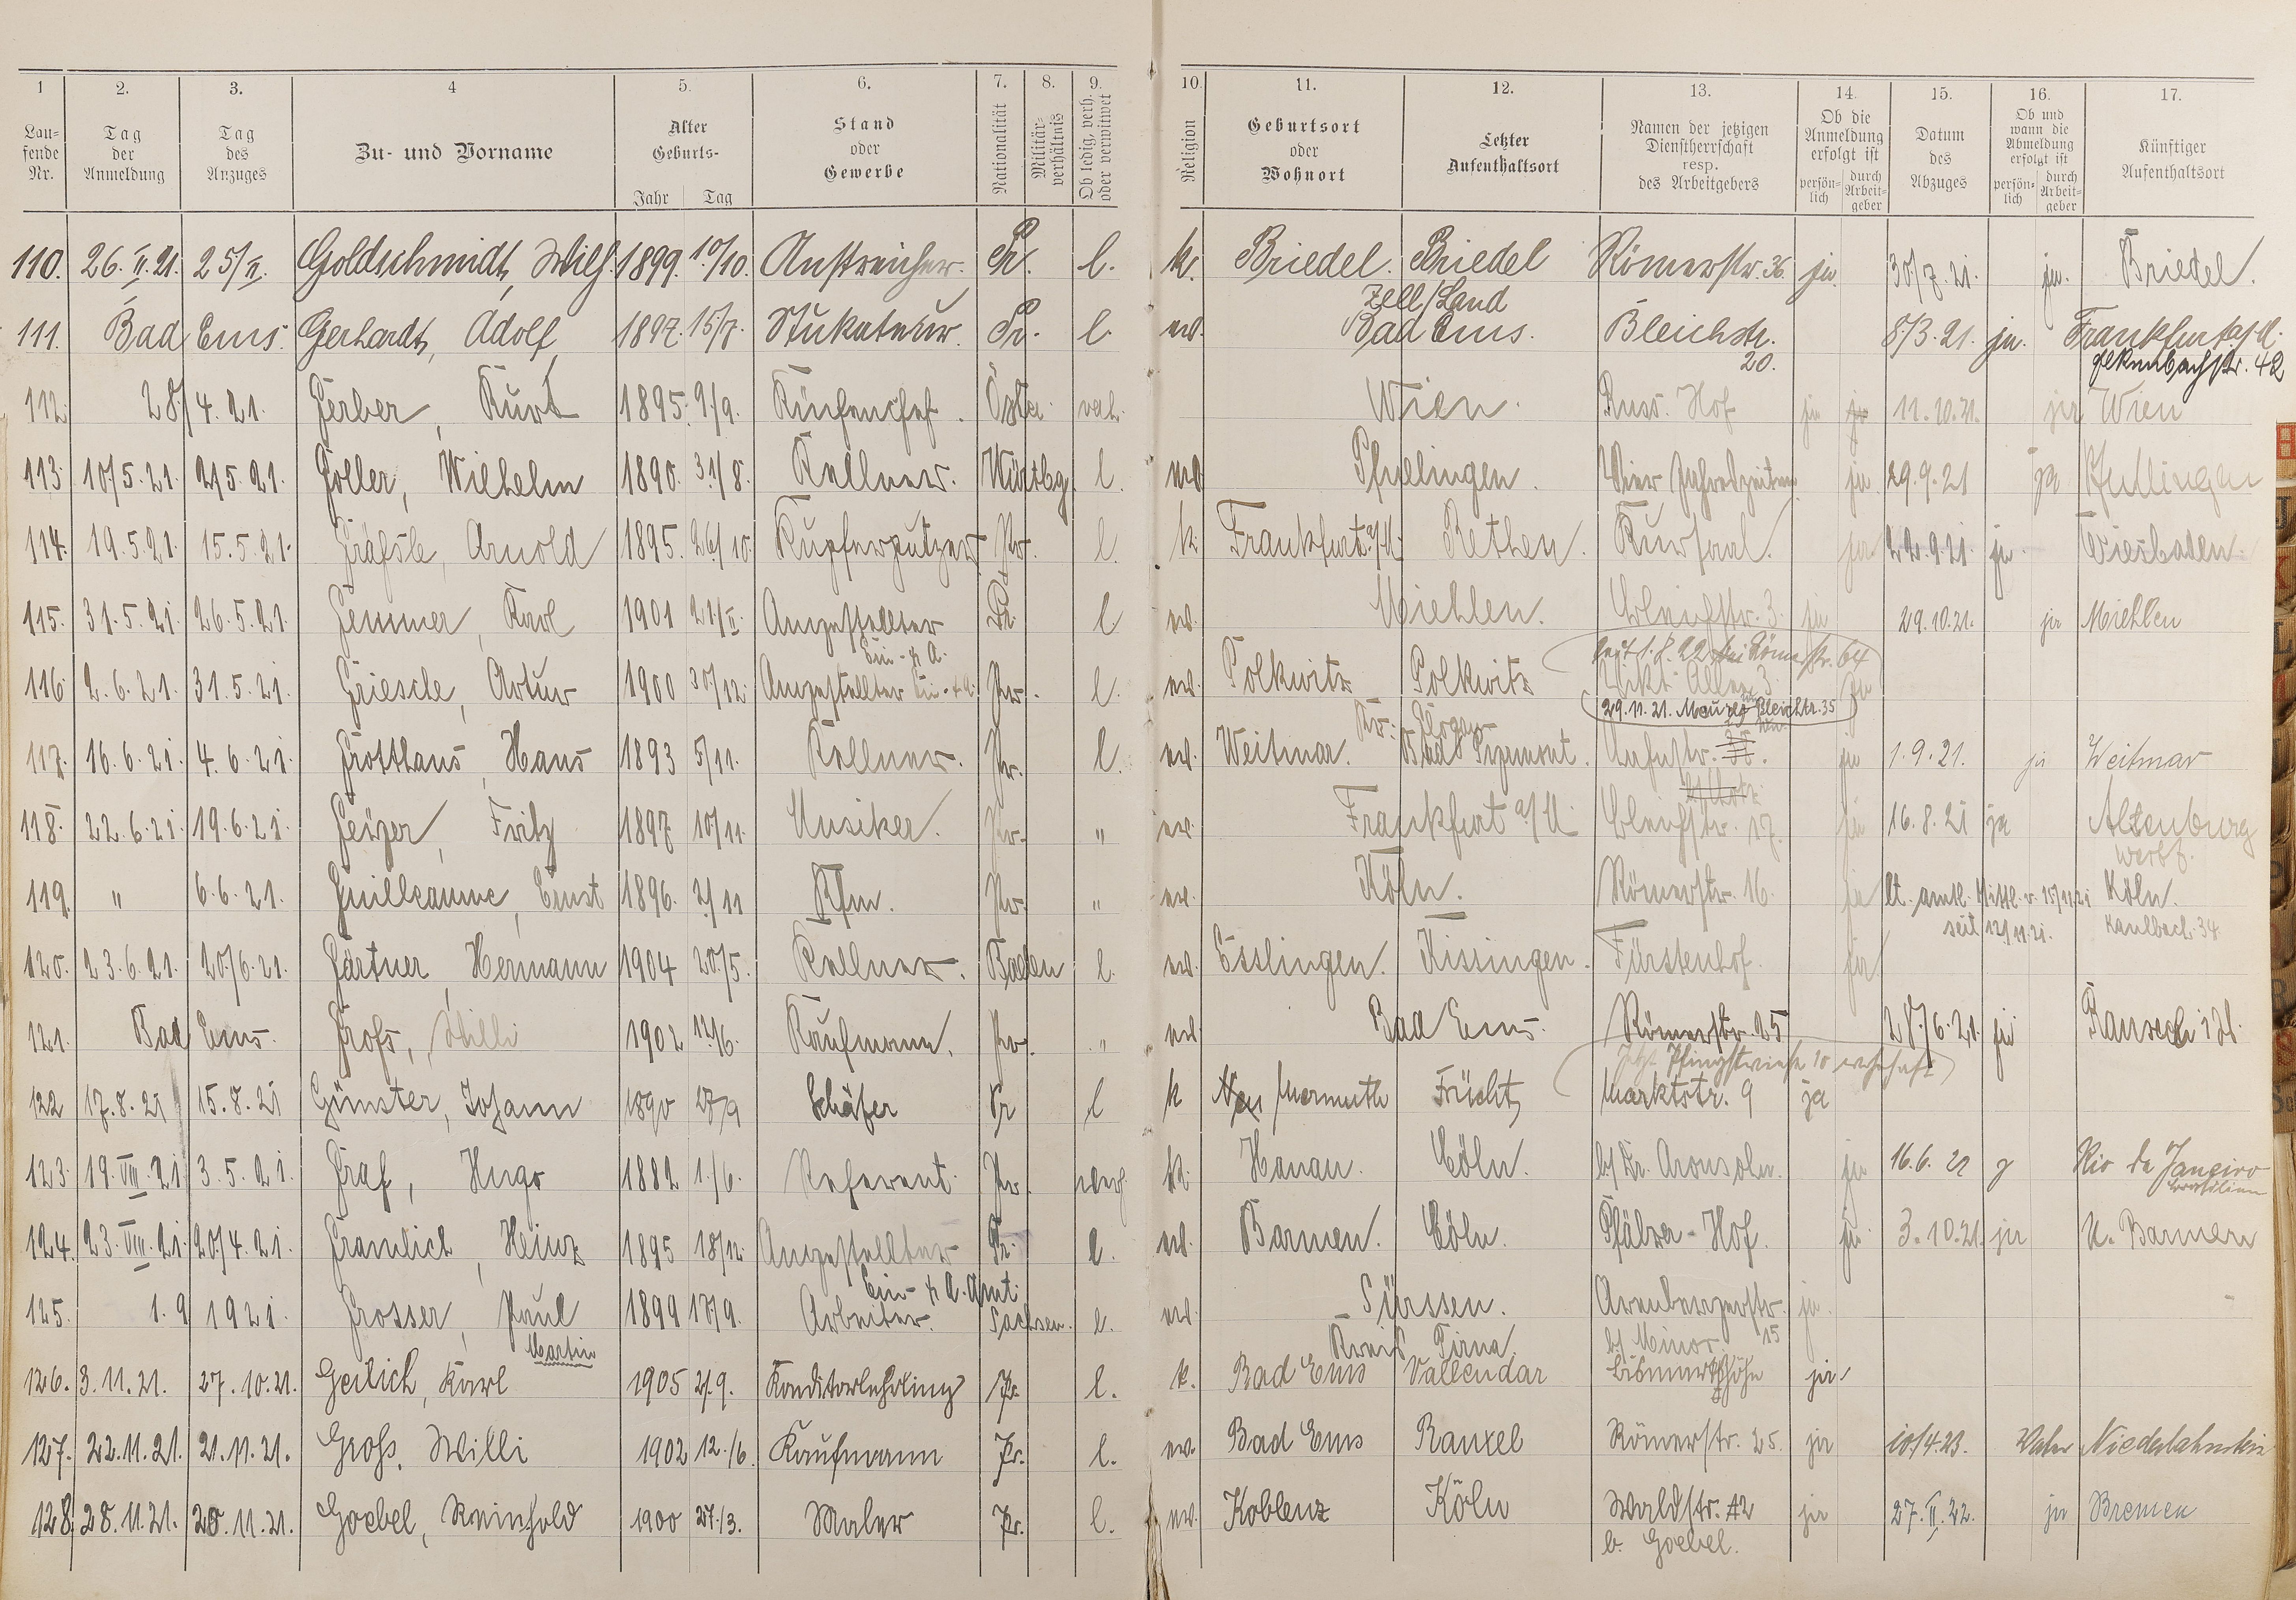 1 2. 3. 4 5. 6. 7. 8. 9. 10. 11. 12. 13. 14. 15. 16. 17.
Lau=
fende
Nr.
Tag
der
Anmeldung
Tag
des
Anzuges
Zu- und Vorname
Alter
Geburts-
Jahr Tag
Stand
oder
Gewerbe
Nationalität
Militär-
verhältnis
Ob ledig, verh.
oder verwitwet
Religion
Geburtsort
oder
Wohnort
Letzter
Aufenthaltsort
Namen der jetzigen
Dienstherrschaft
resp.
des Arbeitgebers
Ob die
Anmeldung
erfolgt ist
persön-
lich
durch
Arbeit-
geber
Datum
des
Abzuges
Ob und
wann die
Abmeldung
erfolgt ist
persön-
lich
durch
Arbeit-
geber
Künftiger
Aufenthaltsort
110. 26.II.21. 25/II. Goldschmidt, Wilh. 1899. 10/10. Anstreicher. Pr. l. k. Briedel. Briedel Römerstr. 36 ja 30/7.21. ja. Briedel.
Zell/Land
111. Bad Ems. Gerhardt, Adolf 1897. 15/7. Stukateur. Pr. l. ev. Bad Ems. Bleichstr. 8/3.21. ja. Frankfurt a/M.
20. 42
112. 28/4.21. Gerber, Kurt 1895. 9/9. Küchenchef. verh. Wien. Russ. Hof ja ja 11.10.21. ja Wien
113. 10/5.21. 2/5.21. Goller, Wilhelm 1890. 31/8. Kellner. Württbg. l. ev. Pfullingen. Vier Jahreszeiten. ja. 29.9.21 ja Pfullingen
114. 19.5.21. 15.5.21. Arnold 1895. 26/10. Kupferputzer Pr. l. k. Frankfurt a/M. Rethen. Kursaal. ja 22.9.21 ja Wiesbaden.
115. 31.5.21. 26.5.21. Gemmer, Karl 1901 21/II. Angestellter Pr. l. ev. Miehlen. Bleichstr. 3. ja 29.10.21. ja Miehlen
Ein- & A. seit 1.8.22 Römerstr. 64
116. 2.6.21. 31.5.21. Griesche, Artur 1900 30/12. Angestellter Pr. l. ev. Polkwitz Polkwitz Vikt. Allee 3. ja
Kr. Glogau 29.11.21. Bleichtr. 35
117. 16.6.21. 4.6.21. Grotthaus, Hans 1893 5/11. Kellner. Pr. l. ev. Weitmar. Bad Pyrmont. ja 1.9.21. ja Weitmar
118. 22.6.21. 19.6.21. Geiger, Fritz 1897 10/11. Musiker. Pr. " ev. Frankfurt a/M. Bleichstr. 17. ja 16.8.21 ja Altenburg
119. " 6.6.21. Guilleaume, Ernst 1896. 2/11 Kfm. Pr. " ev. Köln. Römerstr. 16. ja lt. amtl. Mittl. v. 15/11.21 Köln.
seit 12/11.21. Kaulbach. 34
120. 23.6.21. 20/6.21. Gärtner, Hermann 1904 20/5. Kellner. Baden l. ev. Esslingen. Kissingen. Fürstenhof. ja
121. Bad Ems. Groß, Willi 1902 12/6. Kaufmann. Pr. " ev. Bad Ems. Römerstr. 25 28/6.21. ja
Jetzt Pfingstwiese 10 wohnhaft
122 17.8.21 15.8.21 Günster, Johann 1890 27/9 Schäfer Pr l k Mermuth Frücht, Marktstr. 9 ja
123. 19.VIII.21 3.5.21. Graf, Hugo 1882 1./6. Referent. Pr. verh. k. Hanau. Cöln. b/ Dr. Aronsohn. ja 16.6.22 Rio de Janeiro
Brasilien
124. 23.VIII.21. 20/4.21. Gramlich, Heinz 1895 18/12. Angestellter Pr. l. ev. Barmen. Cöln. Pfälzer-Hof. ja. 3.10.21. ja n. Barmen
Ein- & A. Amt.
125. 1.9 1921. Grosser, Paul 1899 17/9. Arbeiter. Sachsen. l. ev. Sürssen. Arenbergerstr. ja.
Martin Kreis Pirna. b/ Minor. 15
126. 3.11.21. 27.10.21. Gerlich, Karl 1905 2/9. Konditorlehrling Pr. l. k. Bad Ems Vallendar Bismarkhöhe ja.
127. 22.11.21. 21.11.21. Groß, Willi 1902 12./6. Kaufmann Pr. l. ev. Bad Ems Rauxel Römerstr. 25. ja 10/4.23. Vater Niederlahnstein
128. 28.11.21. 28.11.21. Goebel, Reinhold 1900 27./3. Maler Pr. l. ev. Koblenz Köln Waldstr. 42 ja 27.II.22. ja Bremen
b. Goebel.